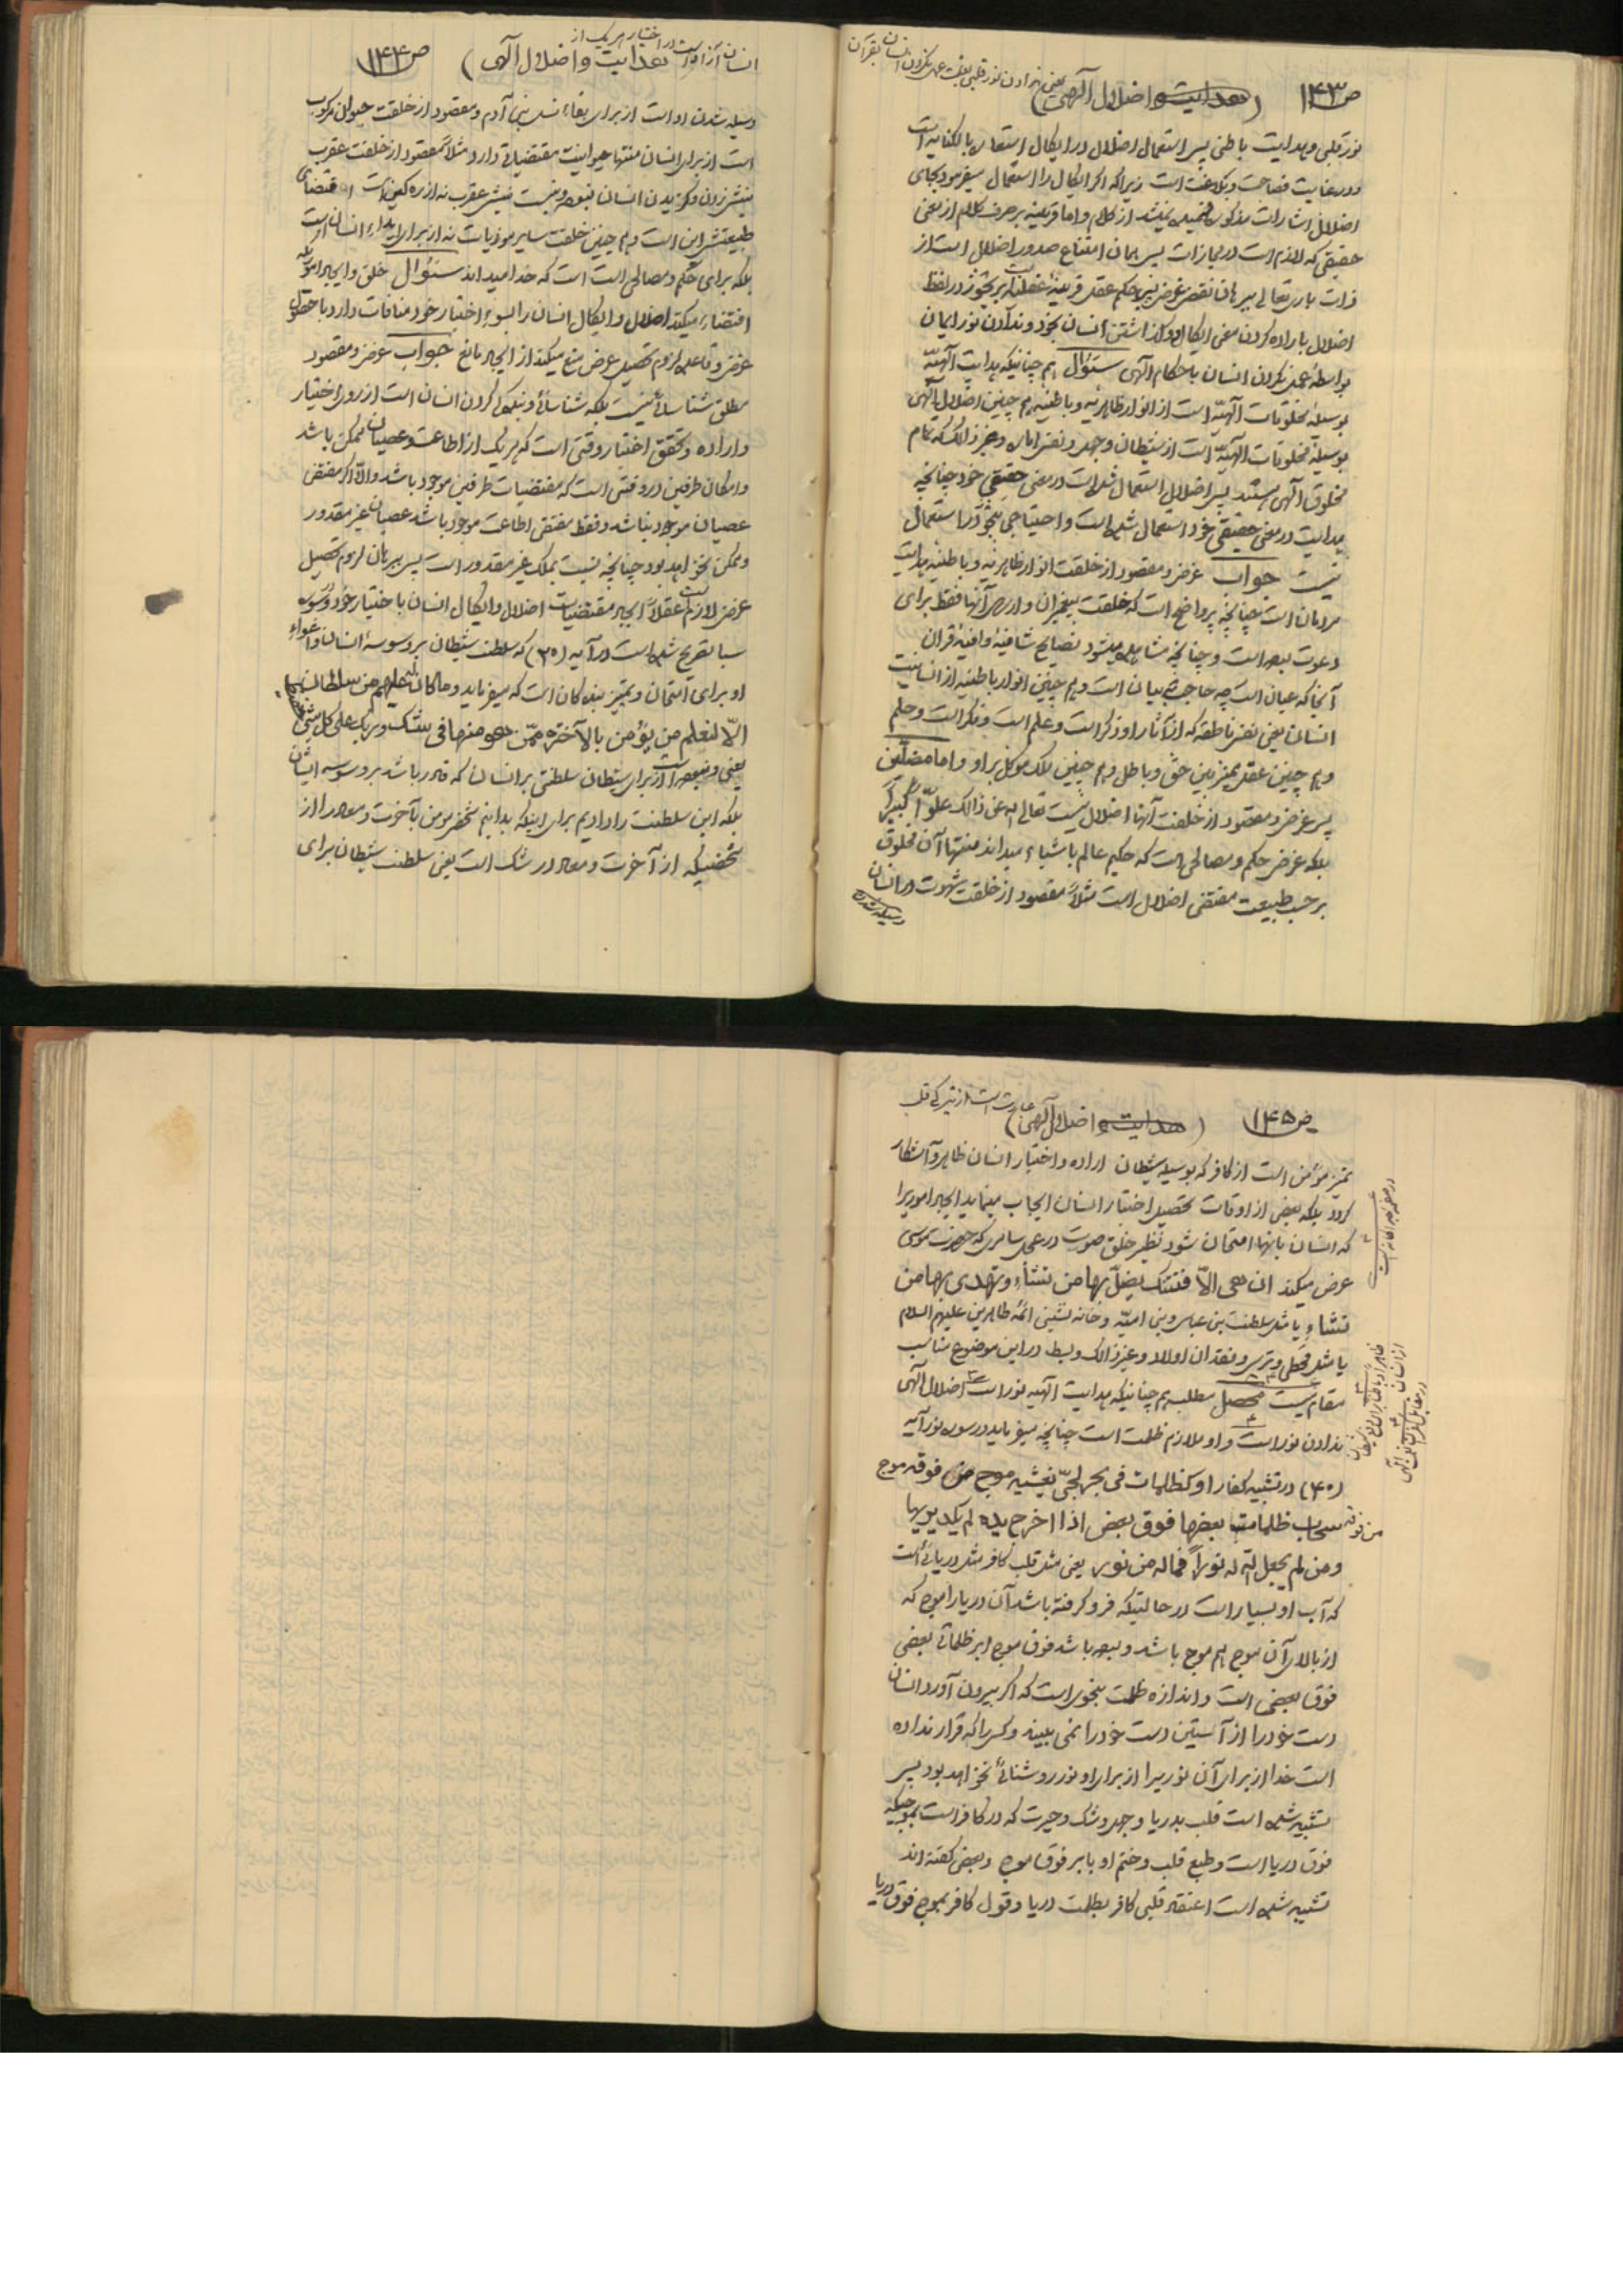 ص۱۴۳ (هدایت و اضلال آلهی) یعنی ندادن نور قلبی بعلت عمل نکردن انسان بقرآن
نور قلبی و هدایت باطنی پس استعمال اضلال در ایکال استعاره بالکنایه است
و در غایت فصاحت و بلاغت است زیرا که اگر ایکال را استعمال میفرمود بجای
اضلال اشارات مذکوره فهمیده نمیشد از کلام و اما قرینه بر صرف کلام از معنی
حقیقی که لازم است در مجازات پس همان امتناع صدور اضلال است از
ذات باری تعالی ببرهان نقض غرض پس حکم عقل قرینه عقلیه است بر تجوز در لفظ
اضلال باراده کردن معنی ایکال و واگذاشتن انسان بخود و ندادن نور ایمان
بواسطه عمل نکردن انسان باحکام آلهی سئوال هم چنانیکه هدایت آلهیّه
بوسیله مخلوقات آلهیّه است از انوار ظاهریه و باطنیه هم چنین اضلال آلهی
بوسیله مخلوقات آلهیّه است از شیطان و جهل و نفس اماره و غیر ذالک که تمام
مخلوق آلهی هستند پس اضلال استعمال شده است در معنی حقیقی خود چنانچه
هدایت در معنی حقیقی خود استعمال شده است و احتیاجی بتجوز در استعمال
نیست جواب غرض و مقصود از خلقت انوار ظاهریه و باطنیه هدایت
مردمان است چنانچه پر واضح است که خلقت پیغمبران و ارسال آنها فقط برای
دعوت بوده است و چنانچه مشاهده میشود نصایح شافیه وافیه قرآن
آنجا که عیان است چه حاجت به بیان است و هم چنین انوار باطنیه از انسانیت
انسان یعنی نفس ناطقه که از آثار او ذکر است و علم است و فکر است و حلم
و هم چنین عقل ممیز بین حق و باطل و هم چنین ملک موکل بر او و اما مضلّین
پس غرض و مقصود از خلقت آنها اضلال نیست تعالی الله عن ذالک علوّاً کبیراً
بلکه غرض حکم و مصالحی است که حکیم عالم باشیاء میداند منتها آن مخلوق
بر حسب طبیعت مقتضی اضلال است مثلاً مقصود از خلقت شهوت در انسان
وسیله شدن
ص۱۴۴ انسان آزاد است در اختیار هر یک از هدایت و اضلال آلهی)
وسیله شدن او است از برای بقاء نسل بنی آدم و مقصود از خلقت حیوان مرکوب
است از برای انسان منتها حیوانیت مقتضیاتی دارد مثلاً مقصود از خلقت عقرب
نیش زدن و گزیدن انسان نبوده و نیست نیش عقرب نه از ره کین است اقتضای
طبیعتش این است و هم چنین خلقت سایر موذیات نه از برای ایذاء انسان است
بلکه برای حکم و مصالحی است که خدا میداند سئوال خلق و ایجاد اموری که
اقتضاء میکند اضلال و ایکال انسان را بسوء اختیار خود منافات دارد با حصول
غرض و قاعده لزوم تحصیل غرض منع میکند از ایجاد مانع جواب غرض و مقصود
مطلق شناسائی نیست بلکه شناسائی و بندگی کردن انسان است از روی اختیار
و اراده و تحقق اختیار وقتی است که هر یک از اطاعت و عصیان ممکن باشد
و امکان طرفین در وقتی است که مقتضیات طرفین موجود باشد و الّا اگر مقتضی
عصیان موجود نباشد و فقط مقتضی اطاعت موجود باشد عصیان غیر مقدور
و ممکن نخواهد بود چنانچه نسبت بملک غیر مقدور است پس ببرهان لزوم تحصیل
غرض لازم است عقلاً ایجاد مقتضیات اضلال و ایکال انسان باختیار خود و در سوره
سبا تصریح شده است در آیه (۲۰) که سلطنت شیطان بر وسوسه انسان و اغواء
او برای امتحان و تمییز بندگان است که میفرماید و ما کان له علیهم من سلطان
الّا لنعلم من یؤمن بالآخرة ممّن هو منها فی شک و ربک علی کل شیء حفیظ
یعنی و نبوده است از برای شیطان سلطنتی بر انسان که قادر باشد بر وسوسه ایشان
بلکه این سلطنت را دادیم برای اینکه بدانیم شخص مومن بآخرت و معاد را از
شخصیکه از آخرت و معاد در شک است یعنی سلطنت شیطان برای
ص۱۴۵ (هدایت و اضلال آلهی) عبارت است از تیرگی قلب
تمییز مؤمن است از کافر که بوسیله شیطان اراده و اختیار انسان ظاهر و آشکار
گردد بلکه بعضی از اوقات تحصیل اختیار انسان ایجاب مینماید ایجاد اموری را
که انسان بانها امتحان شود نظیر خلق صوت در عجل سامری که حضرت موسی
عرض میکند ان هی الّا فتنتک یضلّ بها من تشاء و تهدی بها من
تشاء یا مثل سلطنت بنی عباس و بنی امیّه و خانه نشینی ائمه طاهرین علیهم السلام
یا مثل قحطی و ترس و فقدان اولاد و غیر ذالک و بسط در این موضوع مناسب
مقام نیست محصل مطلب هم چنانیکه هدایت آلهیه نور است اضلال آلهی
ندادن نور است و او ملازم ظلمت است چنانچه میفرماید در سوره نور آیه
(۴۰) در تشبیه کفار او کظلمات فی بحر لجّیّ یغشیه موج من فوقه موج
من فوقه سحاب ظلمات بعضها فوق بعض اذا اخرج یده لم یکد یریها
و من لم یجعل الله له نوراً فما له من نور یعنی مثل قلب کافر مثل دریائی است
که آب او بسیار است در حالتیکه فرو گرفته باشد آن دریا را موج که
از بالای آن موج هم موج باشد و بوده باشد فوق موج ابر ظلماتی بعضی
فوق بعضی است و اندازه ظلمت بنحوی است که اگر بیرون آورد انسان
دست خود را از آستین دست خود را نمی بیند و کسی را که قرار نداده
است خدا از برای آن نوری را از برای او نور روشنائی نخواهد بود پس
تشبیه شده است قلب بدریا و جهل و شک و حیرت که در کافر است بموجیکه
فوق دریا است و طبع قلب و ختم او بابر فوق موج و بعضی گفته اند
تشبیه شده است اعتقاد قلبی کافر بظلمت دریا و قول کافر بموج فوق دریا